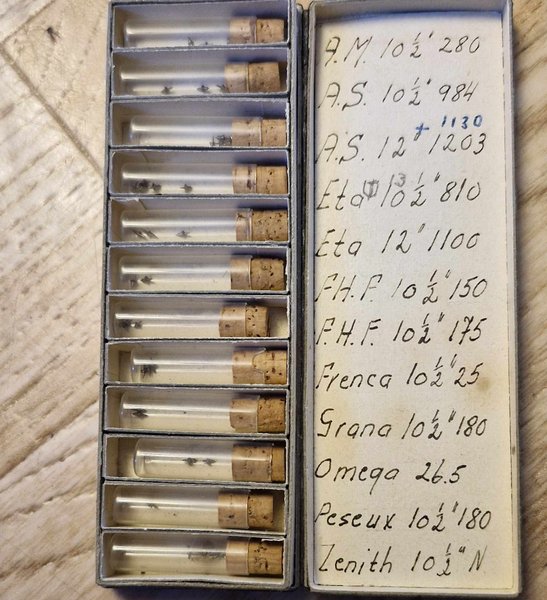 A.M. 10½''' 280
A.S. 10½''' 984
+ 1130
A.S. 12''' 1203
Eta 13 10½''' 810
Eta 12''' 1100
F.H.F. 10½''' 150
F.H.F. 10½''' 175
Frenca 10½''' 25
Grana 10½''' 180
Omega 26.5
Peseux 10½''' 180
Zenith 10½''' N